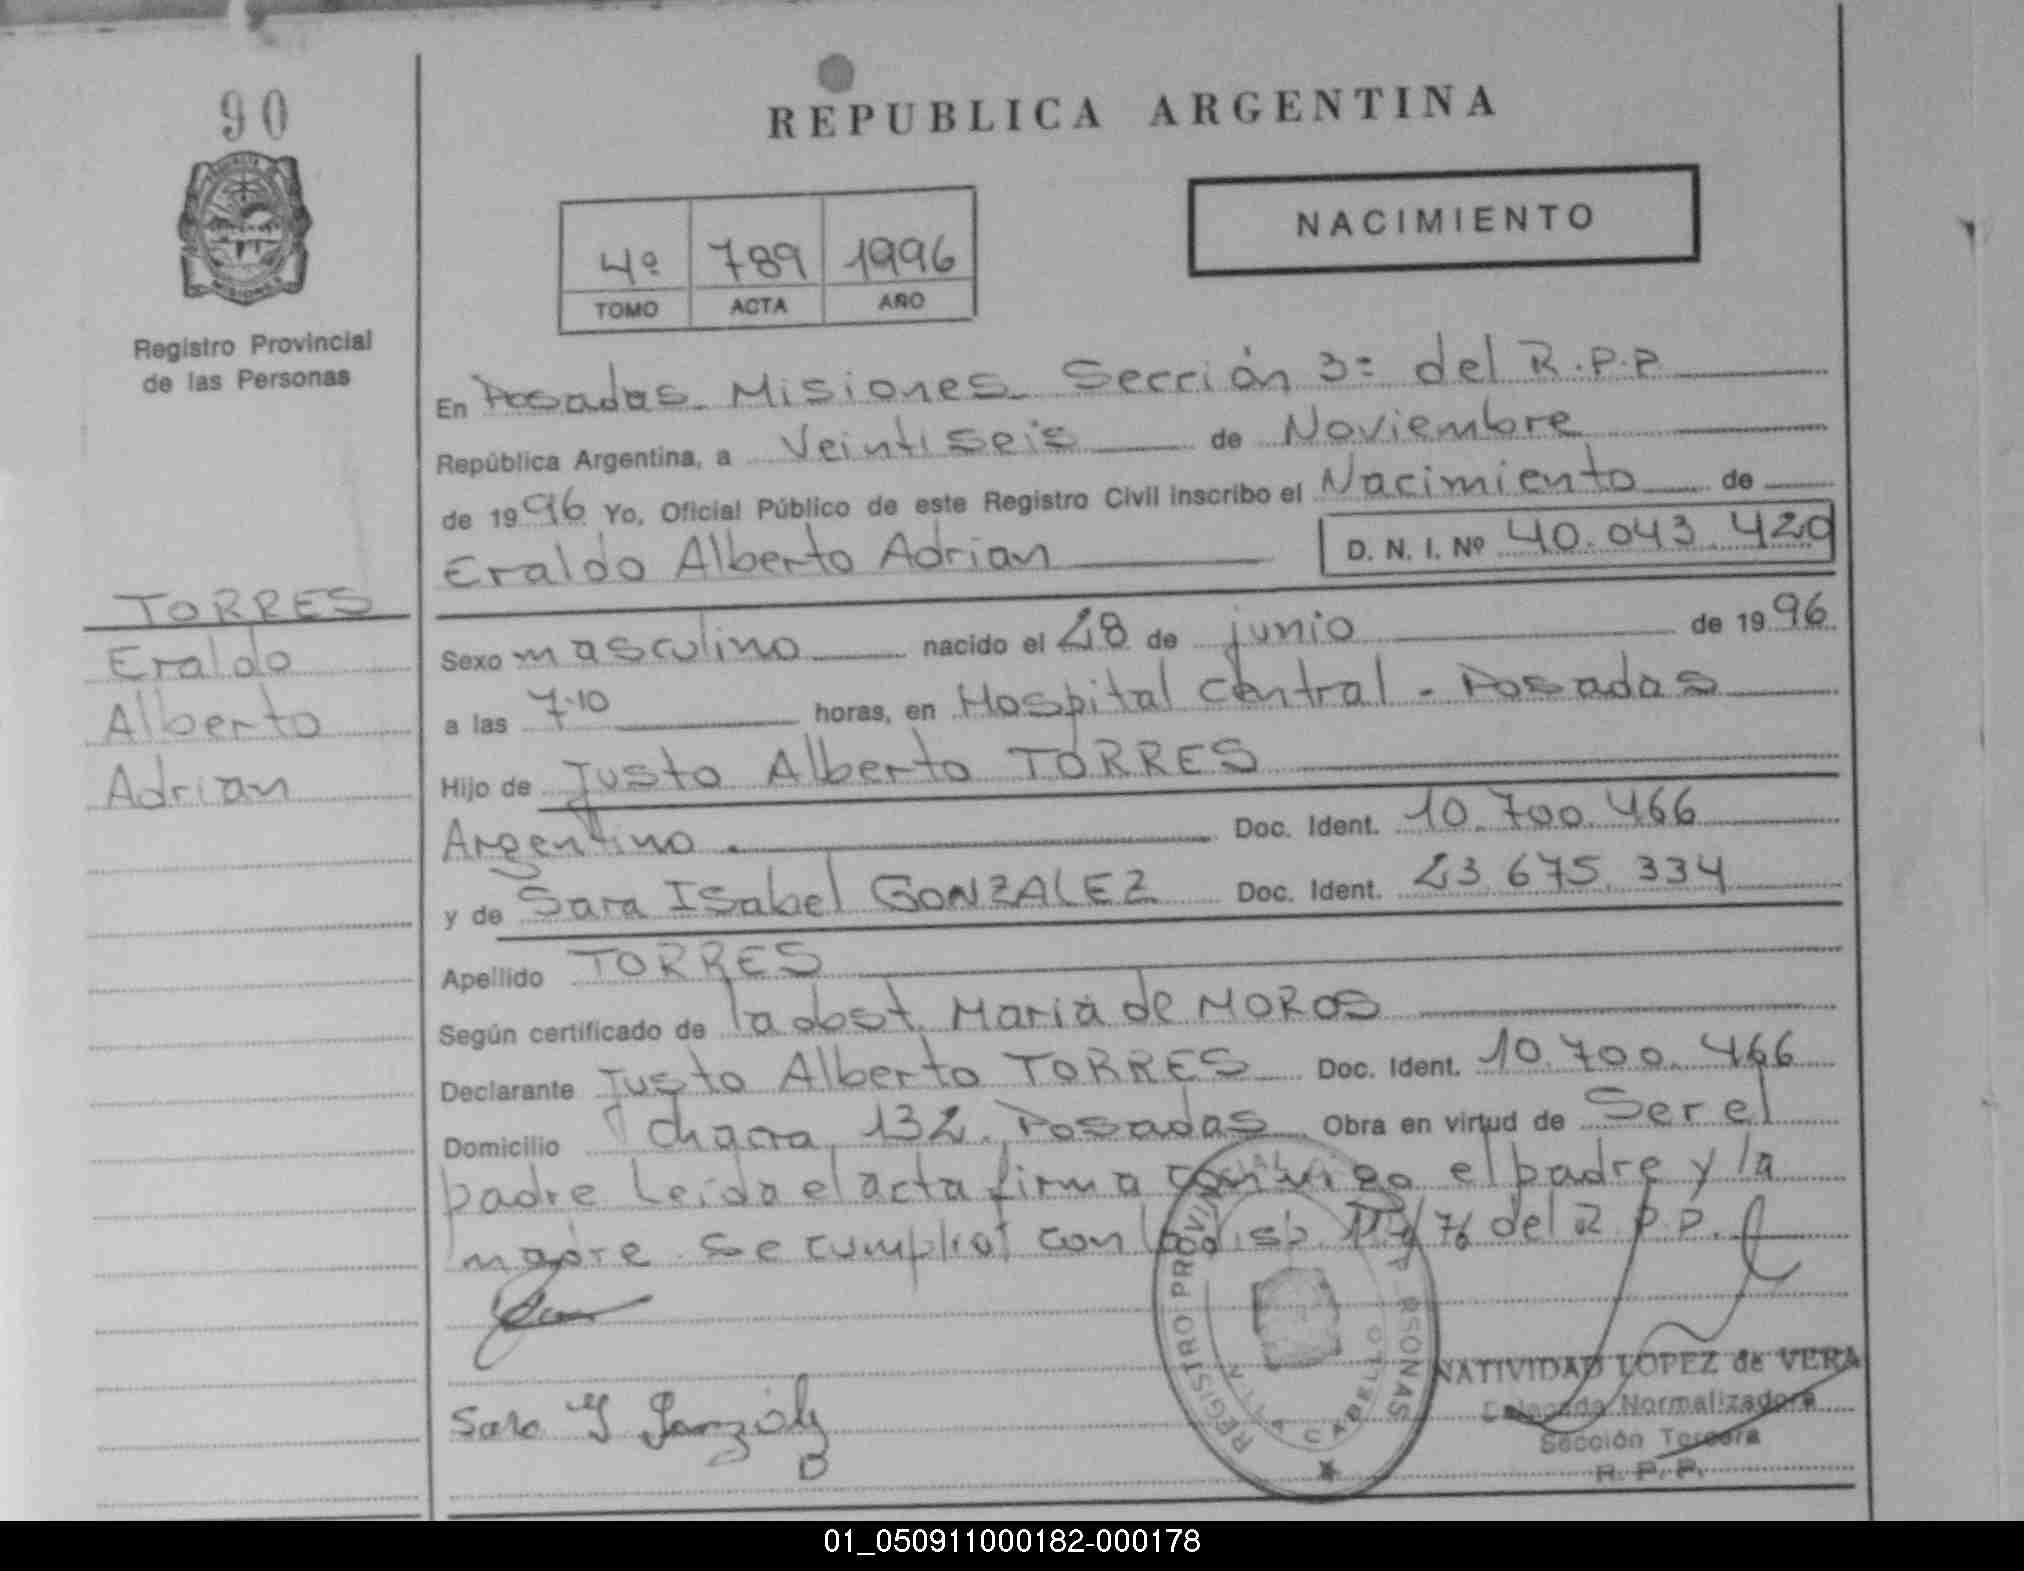 90
REPUBLICA ARGENTINA
NACIMIENTO
4º 789 1996
TOMO ACTA AÑO
Registro Provincial
de las Personas
En Posadas. Misiones. Sección 3= del R.P.P
República Argentina, a Veintiseis de Noviembre
de 1996 Yo, Oficial Público de este Registro Civil inscribo el Nacimiento de
Eraldo Alberto Adrian D. N. I. Nº 40.043.420
TORRES
Eraldo
Alberto
Adrian
Sexo masculino nacido el 28 de junio de 1996
a las 7.10 horas, en Hospital Central - Posadas
Hijo de Justo Alberto TORRES
Argentino. Doc. Ident. 10.700.466
y de Sara Isabel GONZALEZ Doc. Ident. 23.675.334
Apellido TORRES
Según certificado de la obst. Maria de MOROS
Declarante Justo Alberto TORRES Doc. Ident. 10.700.466
Domicilio chacra 132. Posadas Obra en virtud de Ser el
padre Leida el acta firma conmigo el padre y la
madre se cumplió con la disp. /76 del R.P.P.
Sara I González
REGISTRO PROVINCIAL PERSONAS
VILLA CABELLO
NATIVIDAD LOPEZ de VERA
Delegada Normalizadora
Sección Tercera
R. P. P.
01_050911000182-000178